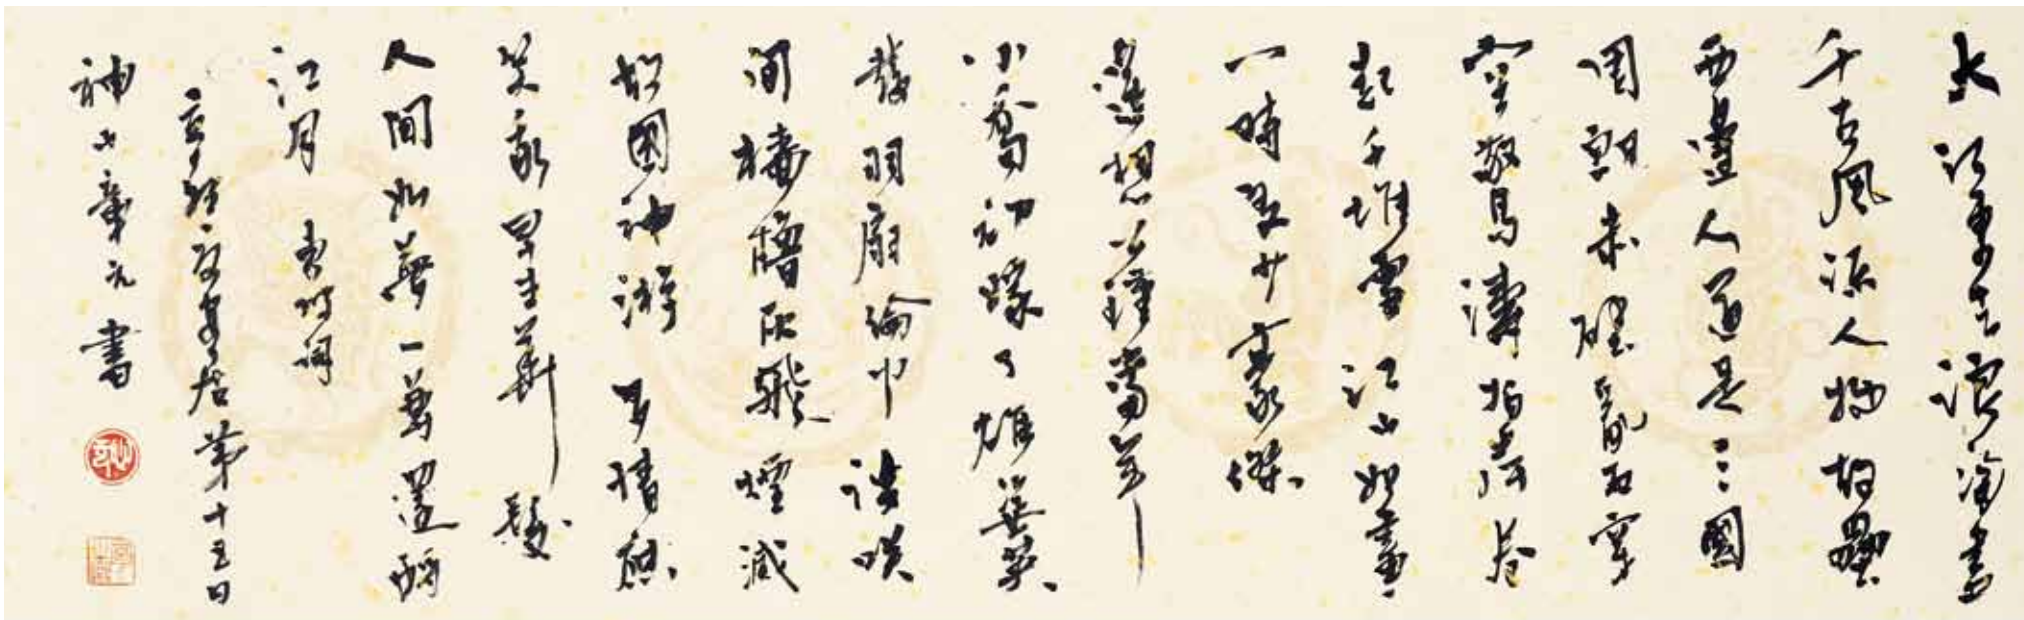 大江東去浪淘盡
千古風流人物故壘
西邊人道是三國
周郎赤壁亂石穿
空驚濤拍岸卷
起千堆雪江山如畫
一時多少豪傑
遙想公瑾當年
小喬初嫁了雄姿英
發羽扇綸巾談咲
間檣櫓灰飛煙滅
故國神游多情應
笑我早生華髮
人間如夢一尊還酹
江月 坡詞
居第十五日
書